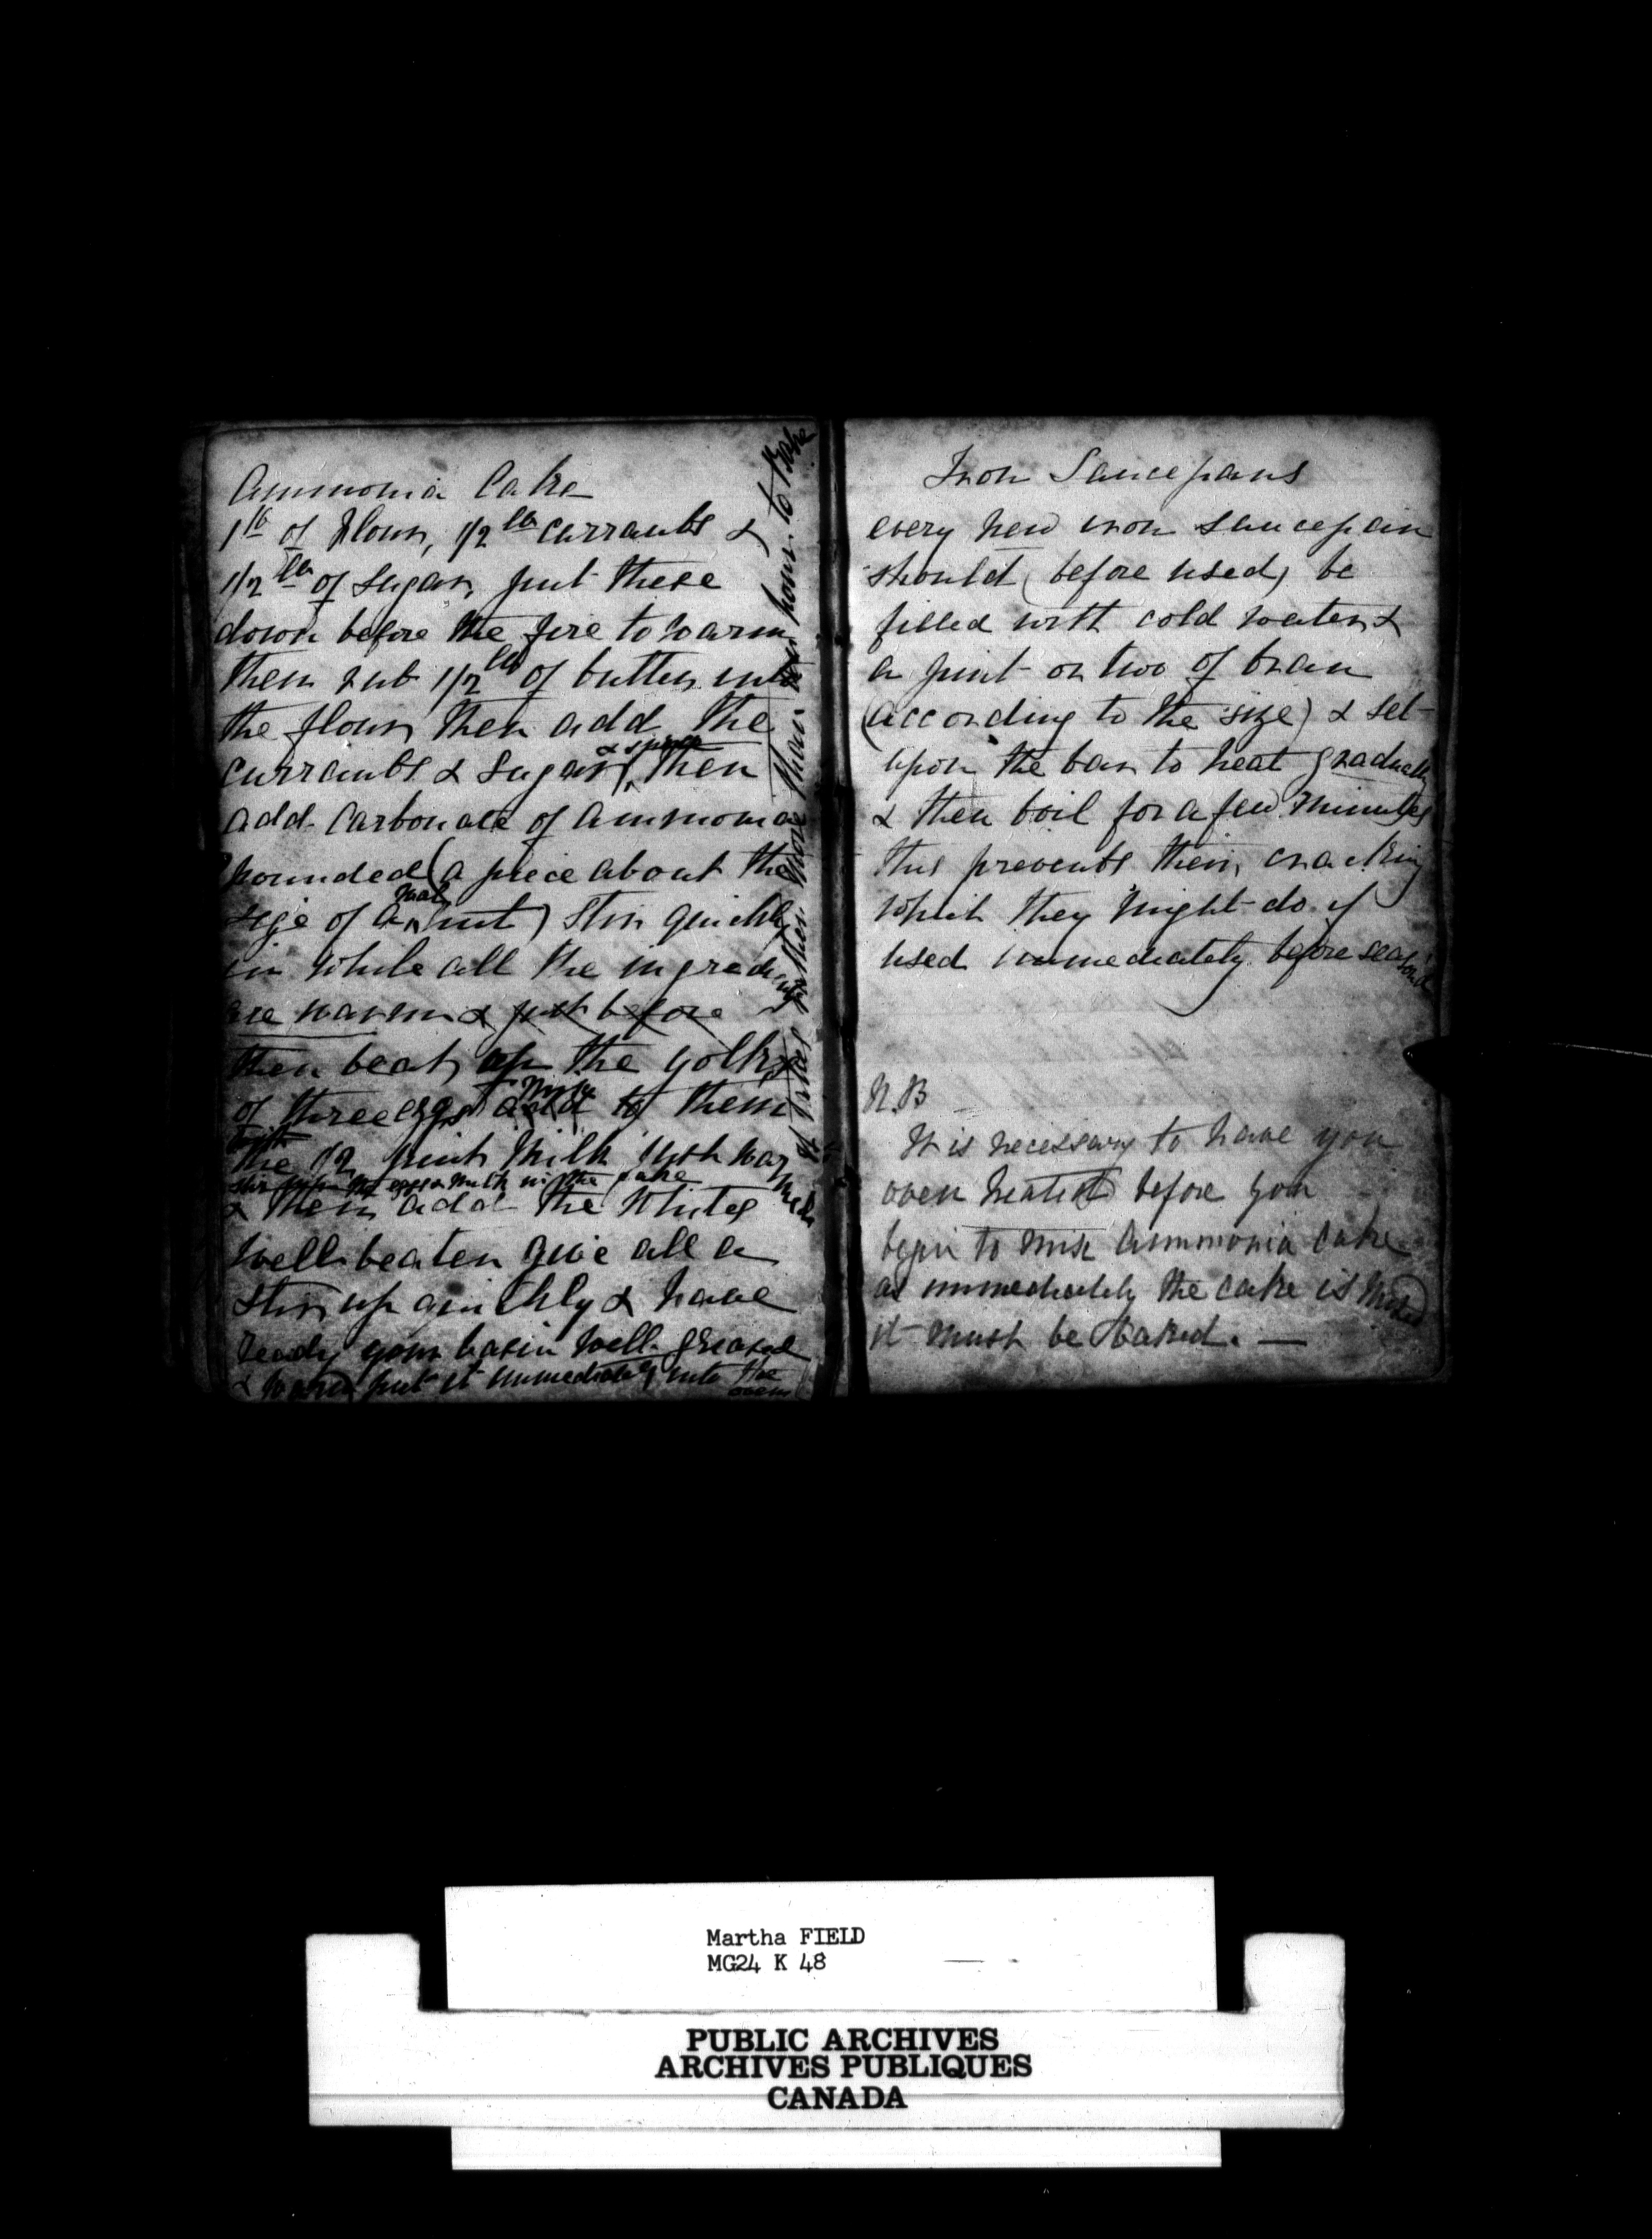 Ammonia Cake
1 lb of flour, 1/2 lb currants &
1/2 lb of sugar, put these
down before the fire to warm
then rub 1/2 lb of butter into
the flour then add the
& spice
currants & sugar, then
add Carbonate of Ammonia
pounded (a piece about the
size of a nut) stir quickly
in while all the ingredients
are warm & just before
then beat up the yolks
of three eggs add to them
with
the 1/2 pint milk just warmed
stir the eggs & milk in the cake
& then add the whites
well beaten give all a
stir up quickly & have
ready your basin well greased
& warm put it immediately into the
oven
It takes rather more than hour to bake
Iron Saucepans
every new iron saucepan
should (before used) be
filled with cold water &
a pint or two of bran
(according to the size) & set
upon the bar to heat gradually
& then boil for a few minutes
this prevents their cracking
which they might do if
used immediately before season'd
N.B
It is necessary to have you
oven heated before you
begin to mix Ammonia Cake
as immediately the cake is mixed
it must be baked. —
Martha FIELD
MG24 K 48
PUBLIC ARCHIVES
ARCHIVES PUBLIQUES
CANADA